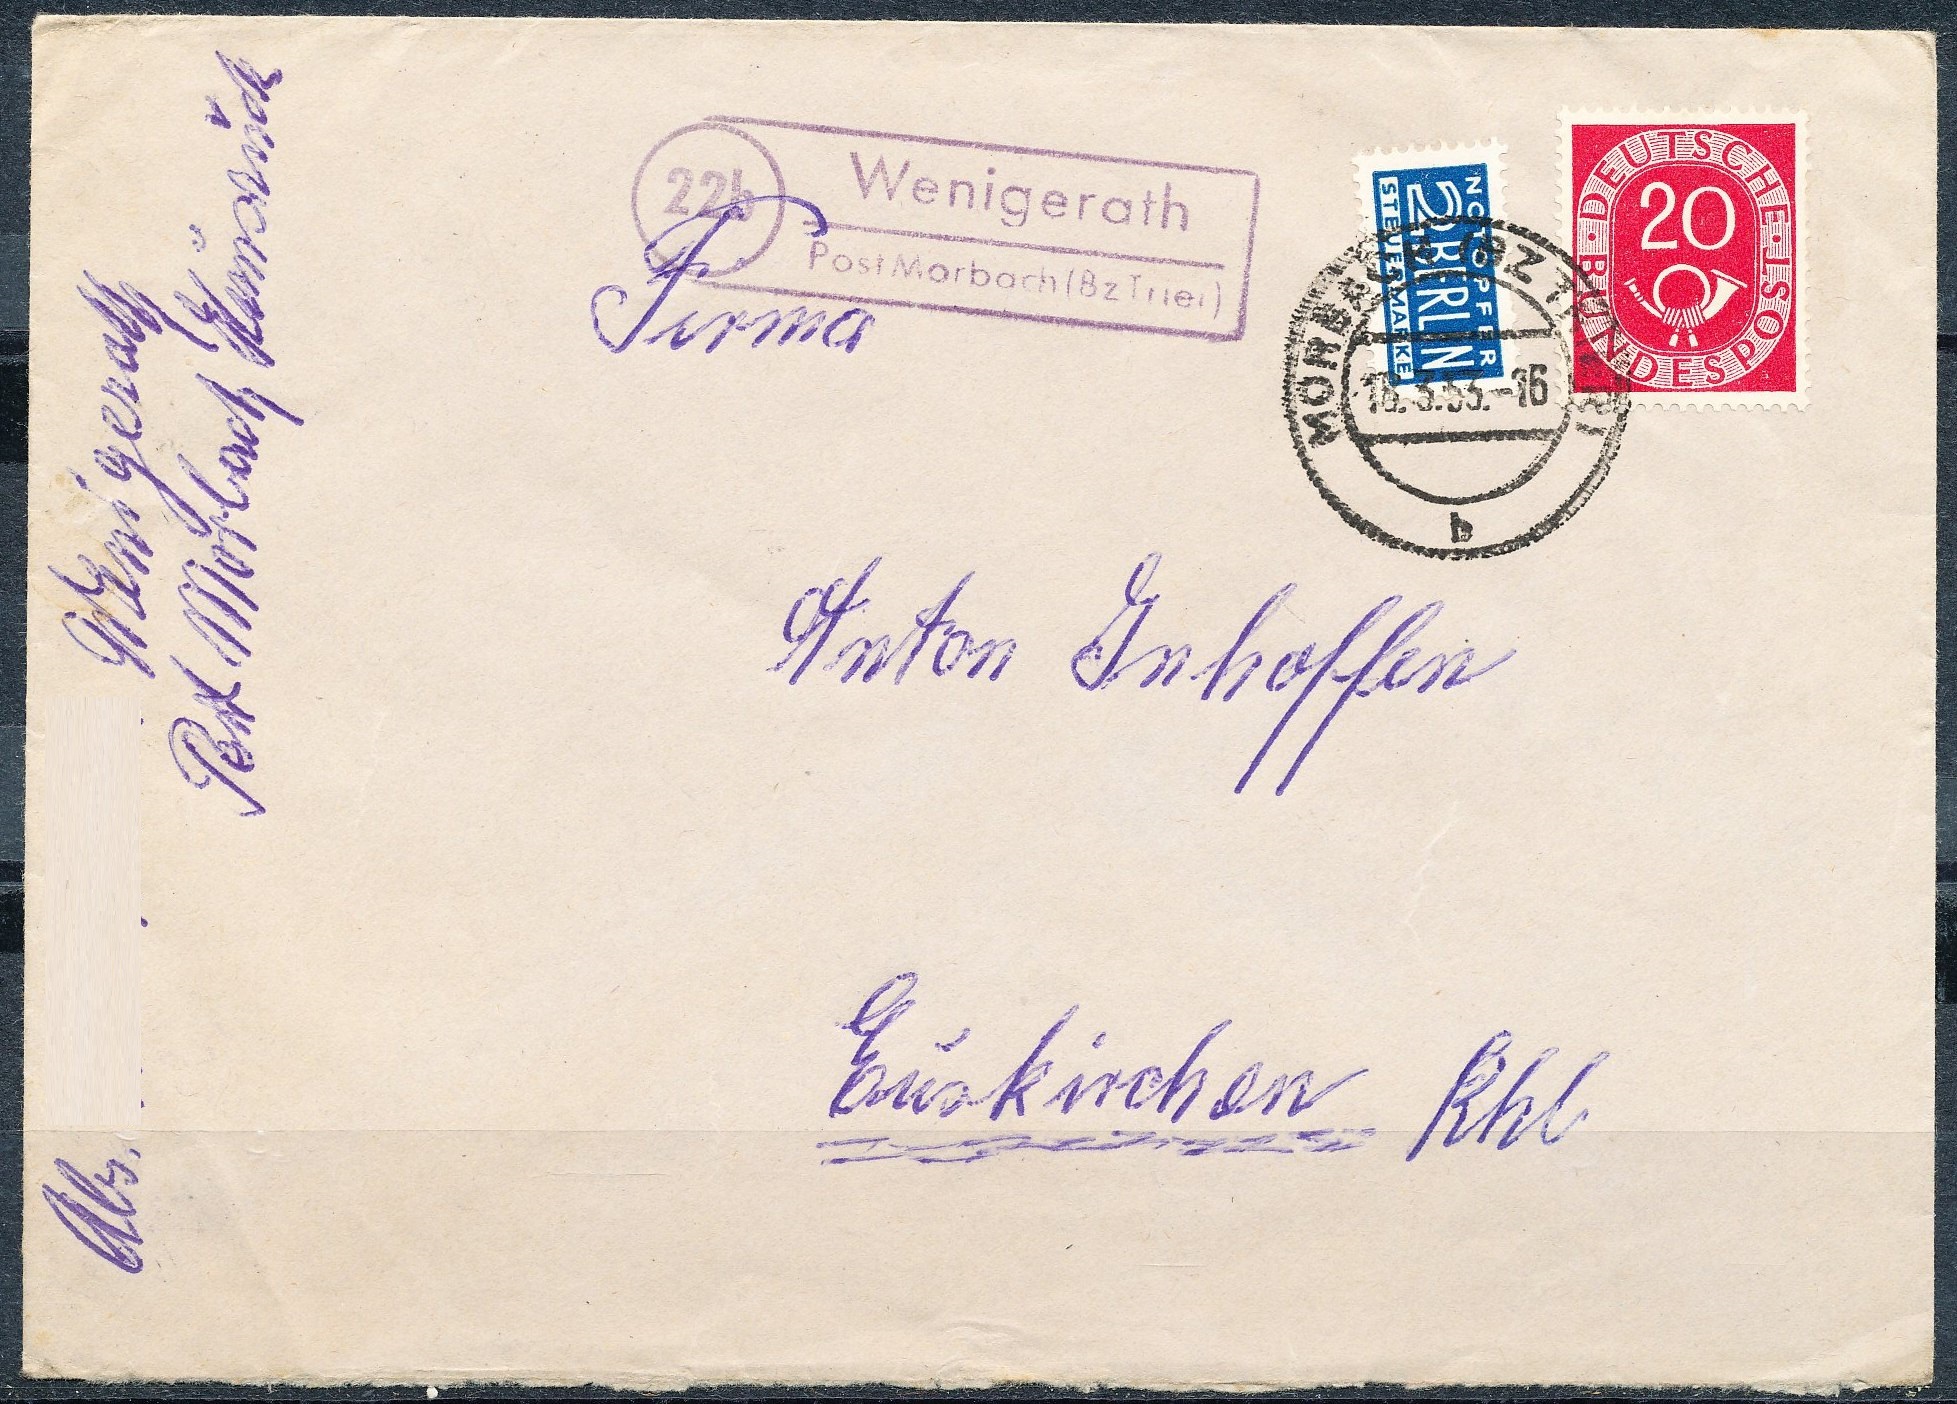 22b
Wenigerath
Post Morbach (Bz Trier)
NOTOPFER
2 BERLIN
STEUERMARKE
DEUTSCHE BUNDESPOST
20
MORBACH (BZ TRIER)
18.3.53.-16
b
Firma
Anton Inhoffen
Euskirchen Rhl
Abs. Wenigerath
Post Morbach Hunsrück